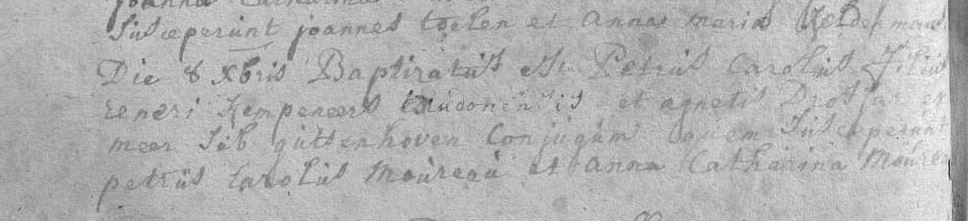 joanna Catharina
Susceperunt joannes toelen et anna maria
Die 8 Xbris Baptizatus est Petrus Carolus Filius
reneri Kempeneers trudonensis et agnetis
meer sub guttenhoven Conjugum quem susceperunt
petrus Carolus Moùreaù et anna Catharina Moùreaù